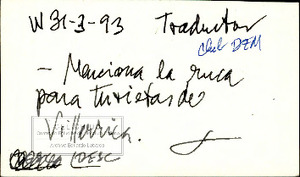 W 31-3-93 Traductor
Cled DZM
- Menciona la ruca
para turistas de
Villarrica.
IDESC